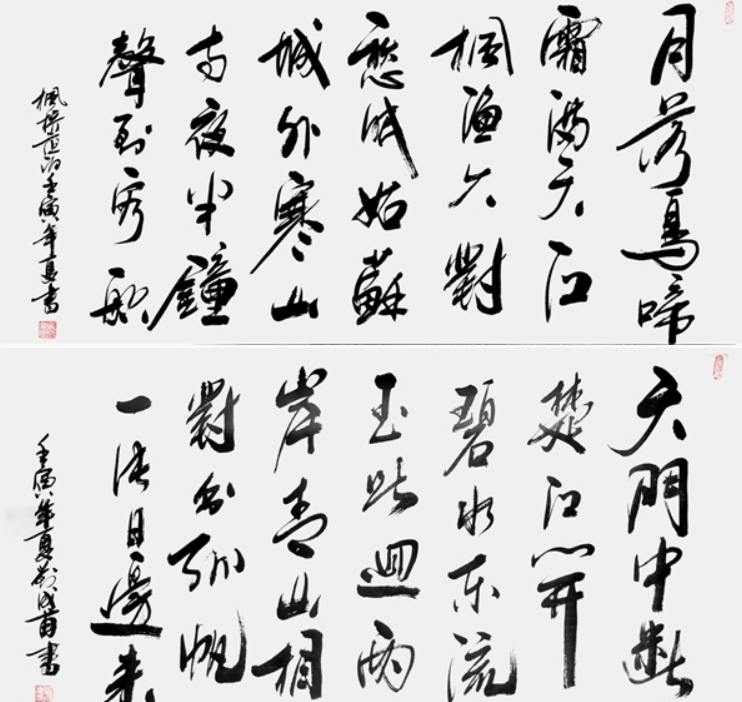 月落烏啼
霜滿天江
楓漁火對
愁眠姑蘇
城外寒山
寺夜半鐘
聲到客船
楓橋夜泊壬寅年夏書
天門中斷
楚江開
碧水東流
至此迴兩
岸青山相
對出孤帆
一片日邊來
壬寅年夏書